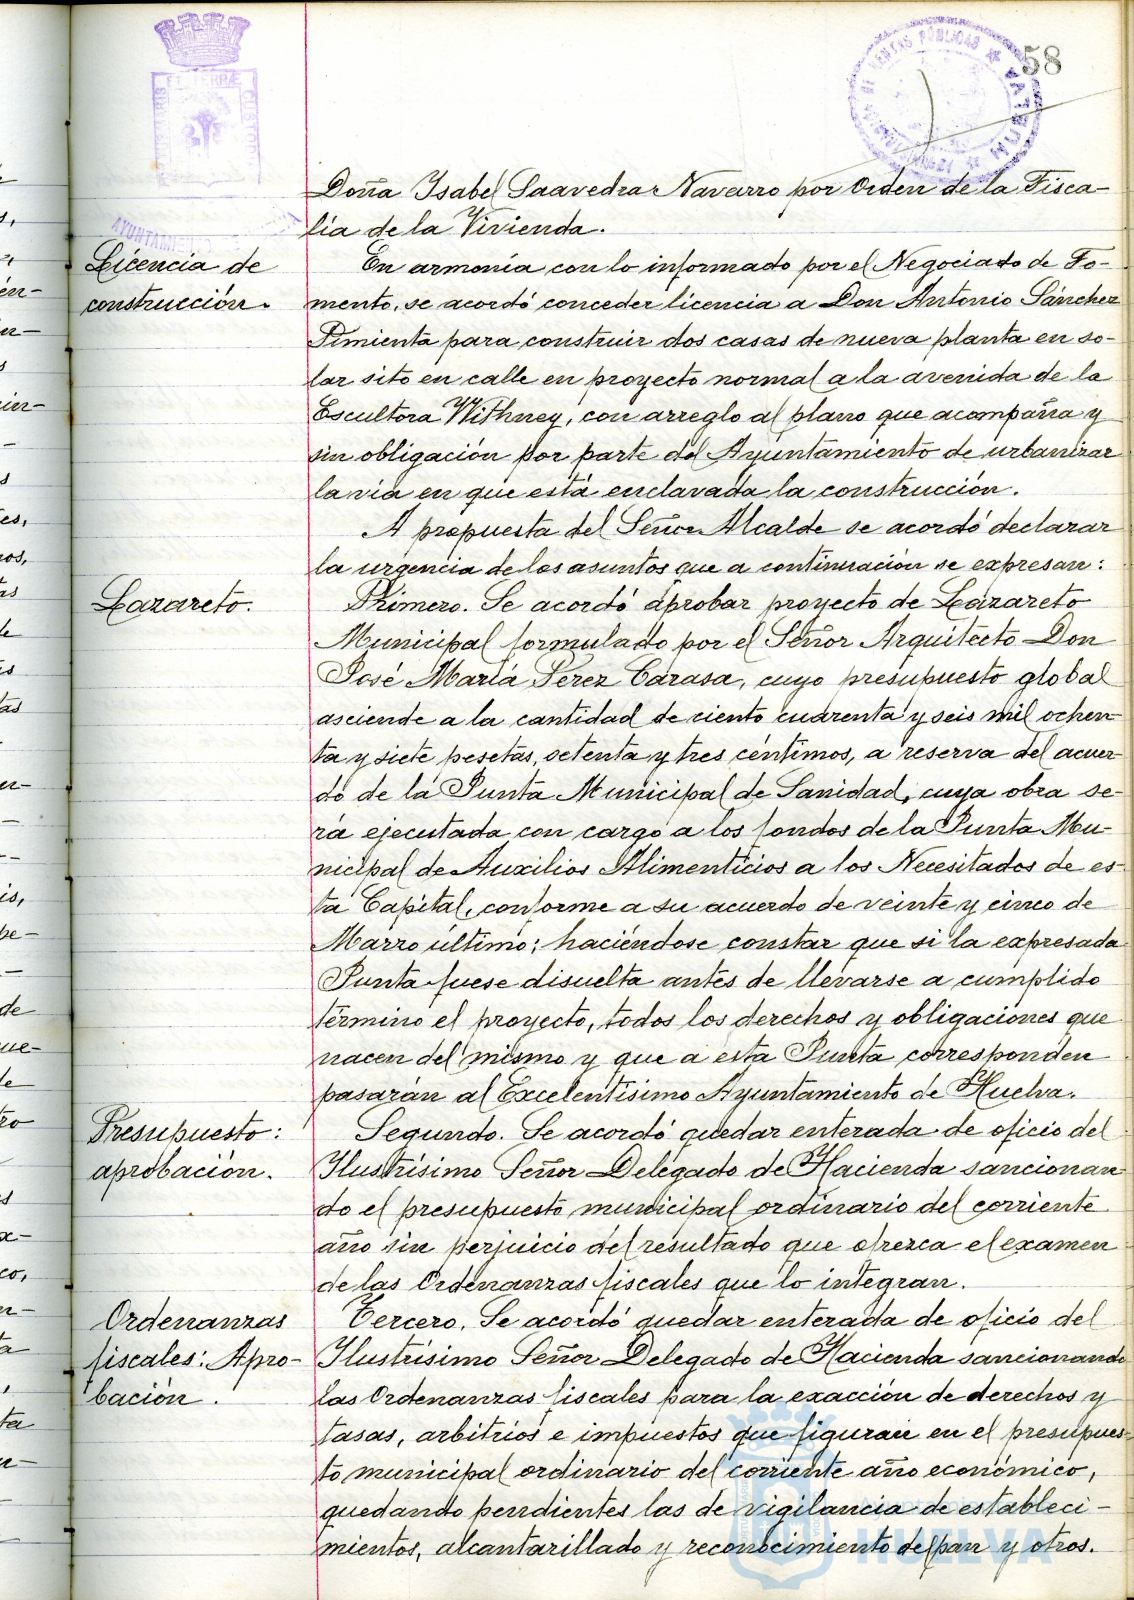 58
Doña Isabel Saavedra Navarro por Orden de la Fisca-
lía de la Vivienda.
Licencia de
construcción.
En armonía con lo informado por el Negociado de Fo-
mento, se acordó conceder licencia a Don Antonio Sánchez
Pimienta para construir dos casas de nueva planta en so-
lar sito en calle en proyecto normal a la avenida de la
Escultora Withney, con arreglo al plano que acompaña y
sin obligación por parte del Ayuntamiento de urbanizar
la vía en que está enclavada la construcción.
A propuesta del Señor Alcalde se acordó declarar
la urgencia de los asuntos que a continuación se expresan:
Lazareto.
Primero. Se acordó aprobar proyecto de Lazareto
Municipal formulado por el Señor Arquitecto Don
José María Pérez Carasa, cuyo presupuesto global
asciende a la cantidad de ciento cuarenta y seis mil ochen-
ta y siete pesetas, setenta y tres céntimos, a reserva del acuer-
do de la Junta Municipal de Sanidad, cuya obra se-
rá ejecutada con cargo a los fondos de la Junta Mu-
nicipal de Auxilios Alimenticios a los Necesitados de es-
ta Capital, conforme a su acuerdo de veinte y cinco de
Marzo último; haciéndose constar que si la expresada
Junta fuese disuelta antes de llevarse a cumplido
término el proyecto, todos los derechos y obligaciones que
nacen del mismo y que a esta Junta corresponden
pasarán al Excelentísimo Ayuntamiento de Huelva.
Presupuesto:
aprobación.
Segundo. Se acordó quedar enterada de oficio del
Ilustrísimo Señor Delegado de Hacienda sancionan
do el presupuesto municipal ordinario del corriente
año sin perjuicio del resultado que ofrezca el examen
de las Ordenanzas fiscales que lo integran.
Ordenanzas
fiscales: Apro-
bación.
Tercero. Se acordó quedar enterada de oficio del
Ilustrísimo Señor Delegado de Hacienda sancionando
las Ordenanzas fiscales para la exacción de derechos y
tasas, arbitrios e impuestos que figuran en el presupues-
to municipal ordinario del corriente año económico,
quedando pendientes las de vigilancia de estableci-
mientos, alcantarillado y reconocimiento del pan y otros.
HUELVA